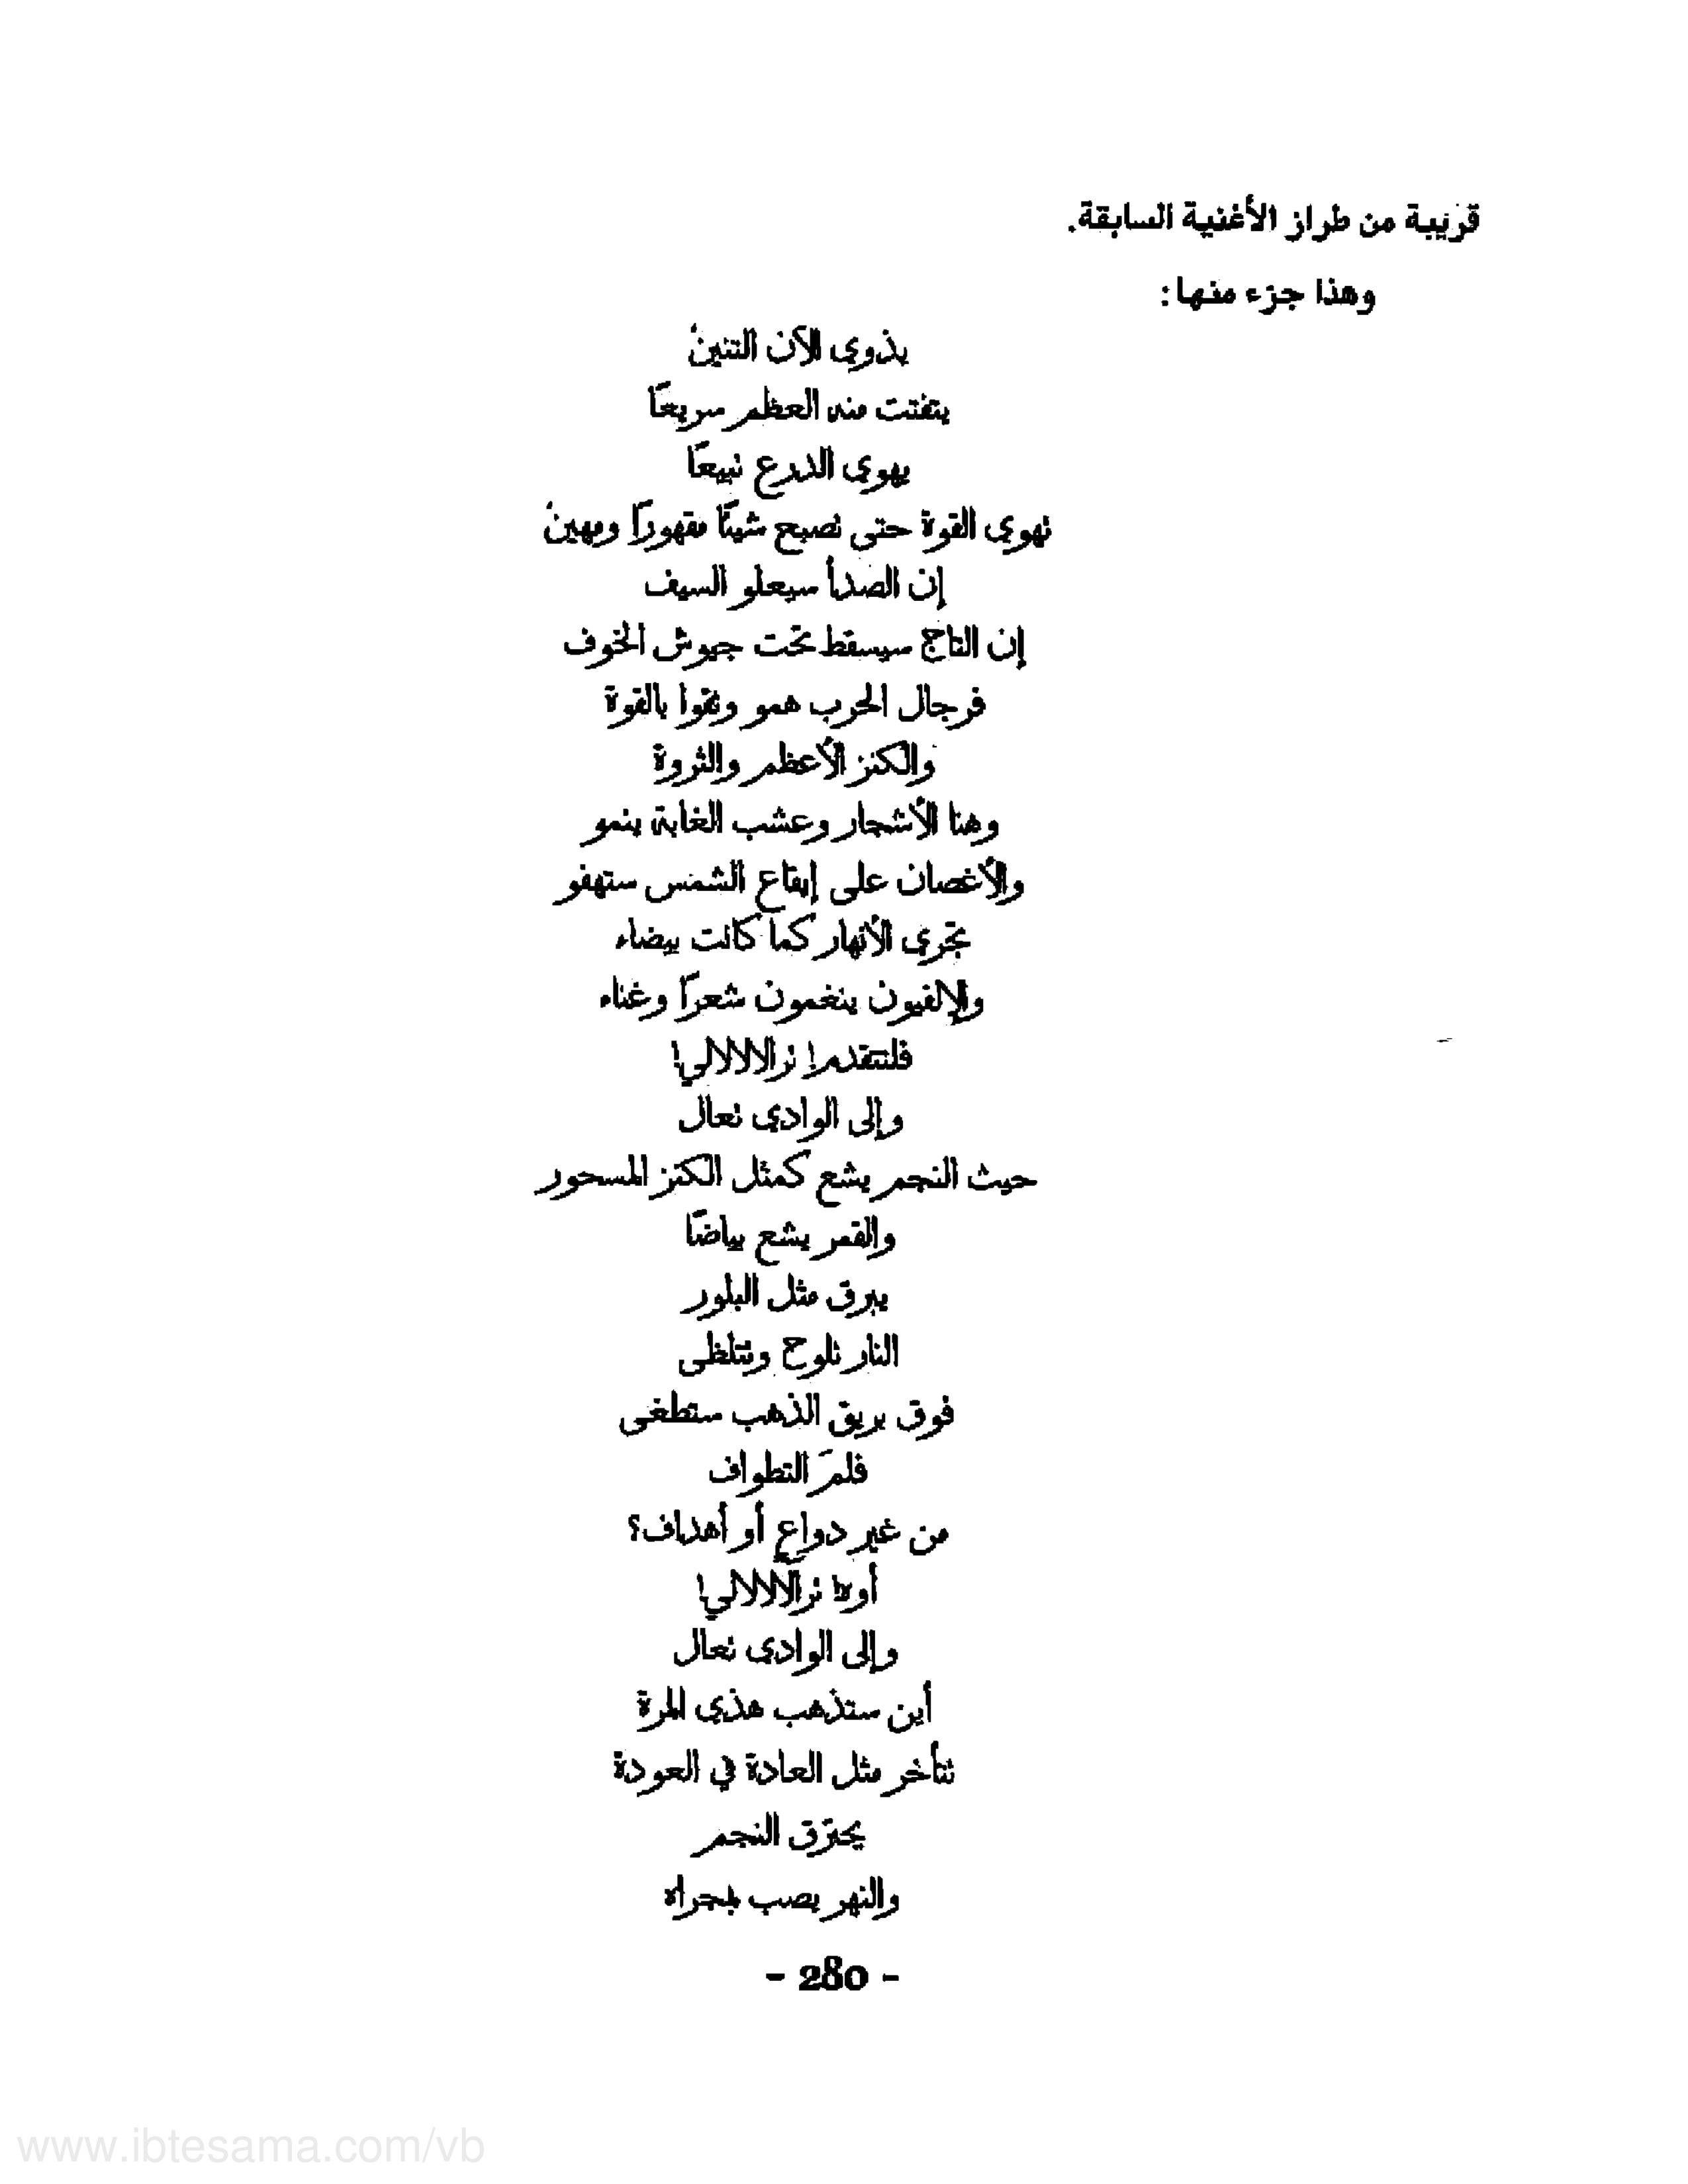 قريبة من طراز الأغنية السابقة.
وهذا جزء منها:
يذوي الآن التنينْ
يتفتت منه العظم سريعًا
يهوي الدرع تبيعًا
تهوي القوة حتى تصبح شيئًا مقهورًا ومهينْ
إن الصدأ سيعلو السيف
إن التاج سيسقط تحت جيوش الخوف
فرجال الحرب همو وثقوا بالقوة
والكنز الأعظم والثروة
وهنا الأشجار وعشب الغابة ينمو
والأغصان على إيقاع الشمس ستهفو
تجري الأنهار كما كانت بيضاء
والإلفيون ينغمون شعرًا وغناء
فلنتقدم! ترالالالالي!
وإلى الوادي تعال
حيث النجم يشع كمثل الكنز المسحور
والقمر يشع بياضًا
يبرق مثل البلور
النار تلوح وتتلظى
فوق بريق الذهب ستطغى
فلمَ التطواف
من غير دواعٍ أو أهداف؟
أوه! ترالالالالي!
وإلى الوادي تعال
أين ستذهب هذي المرة
تتأخر مثل العادة في العودة
يحترق النجم
والنهر يصب بمجراه
- 280 -
www.ibtesama.com/vb